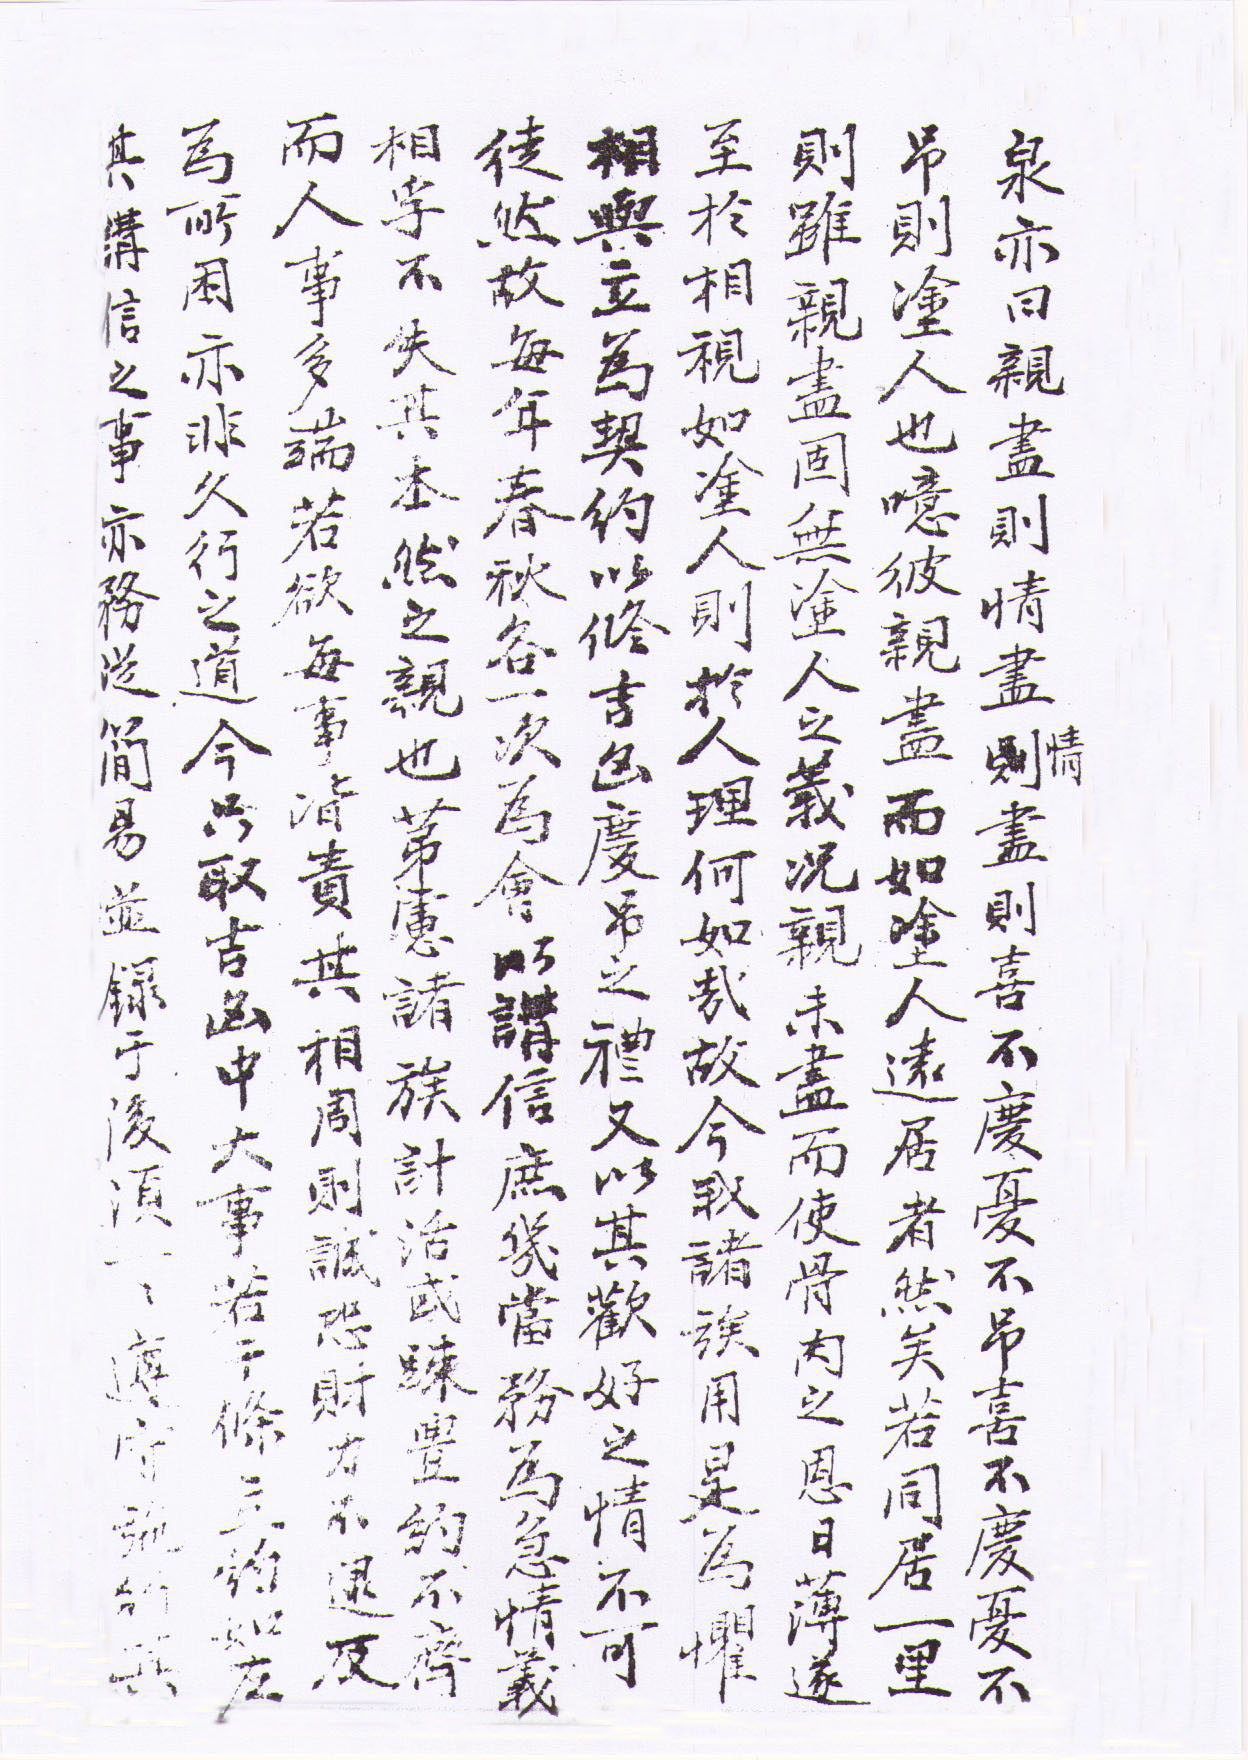 泉亦曰親盡則情盡情則盡則喜不慶憂不吊喜不慶憂不
吊則塗人也噫彼親盡而如塗人遠居者然矣若同居一里
則雖親盡固無塗人之義况親未盡而使骨肉之恩日薄遂
至於相視如塗人則於人理何如哉故今我諸族用是為懼
相與立為契約以修吉凶慶吊之禮又以其歡好之情不可
徒然故每年春秋各一次為會以講信庶幾當務為急情義
相孚不失其本然之親也苐慮諸族計活或踈豊約不齊
而人事多端若欲每事皆責其相周則誠恐財力不逮反
為所困亦非久行之道今只取吉凶中大事若干條立約如左
其講信之事亦務從簡易並錄于後須一〻遵守